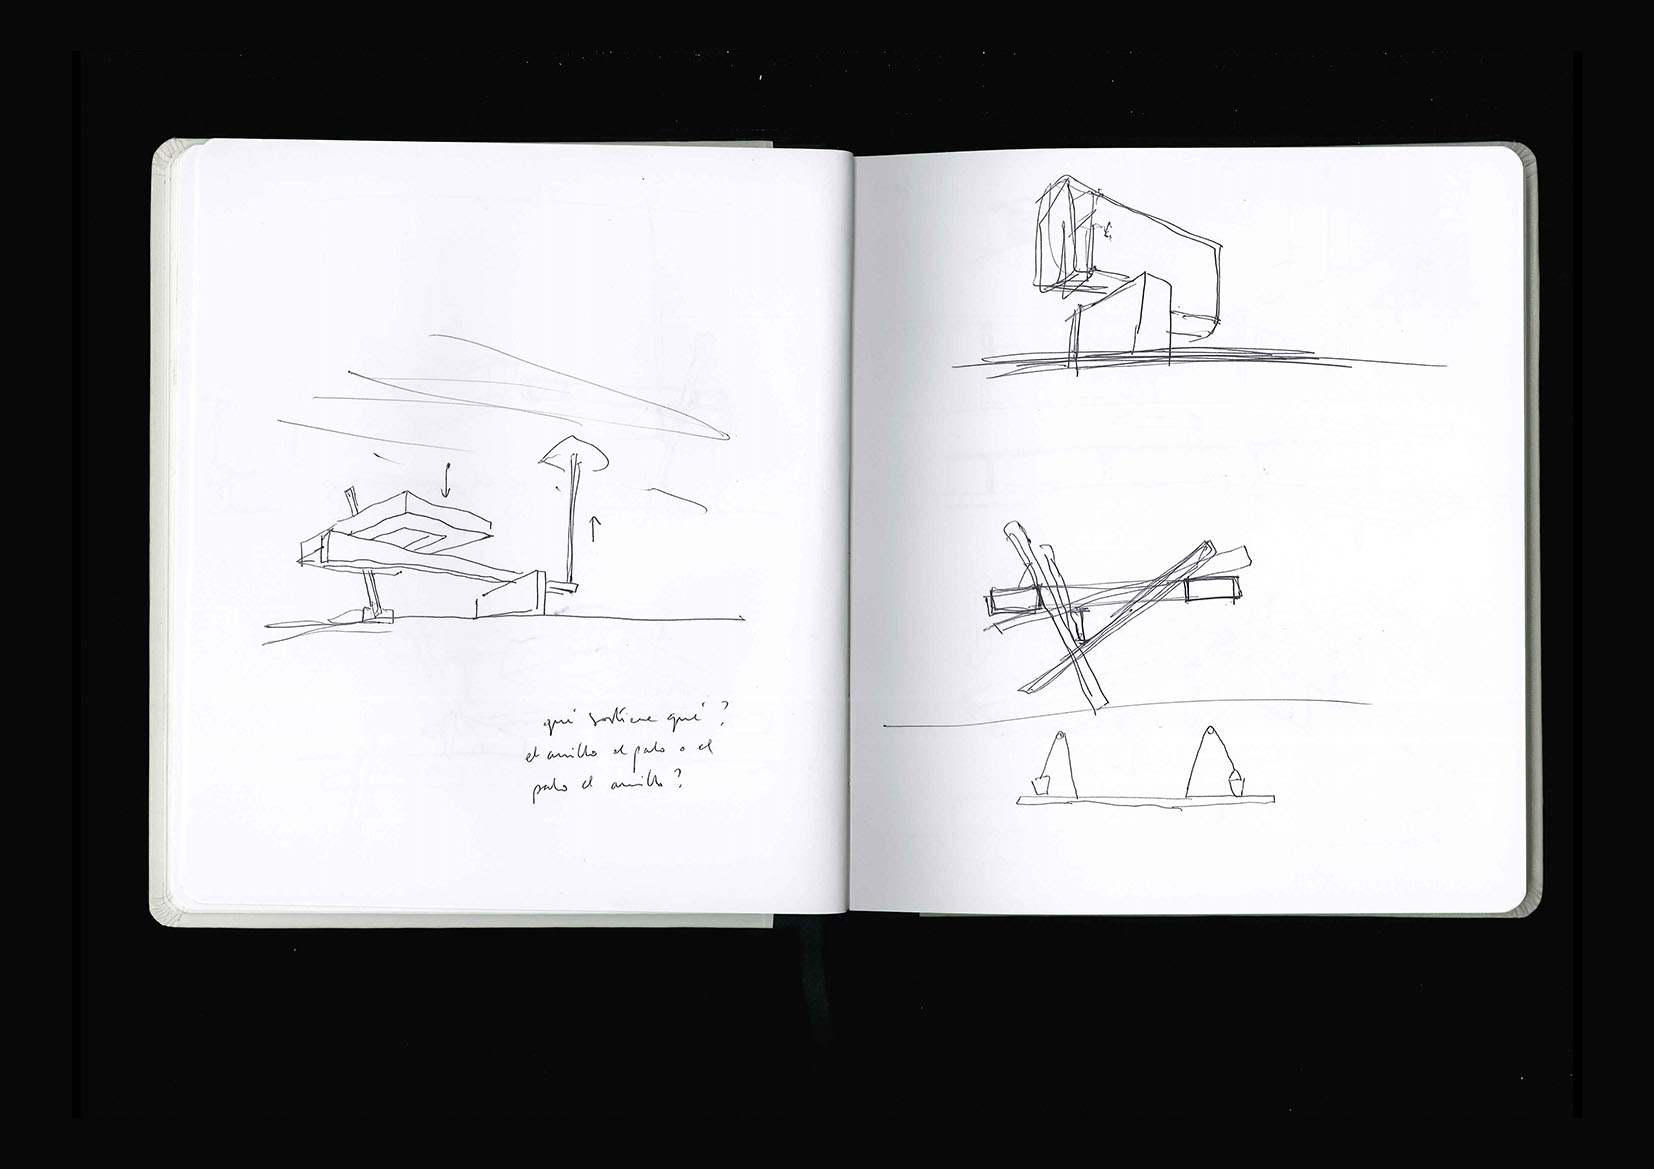 qué sostiene qué?
el anillo al palo o el
palo al anillo?